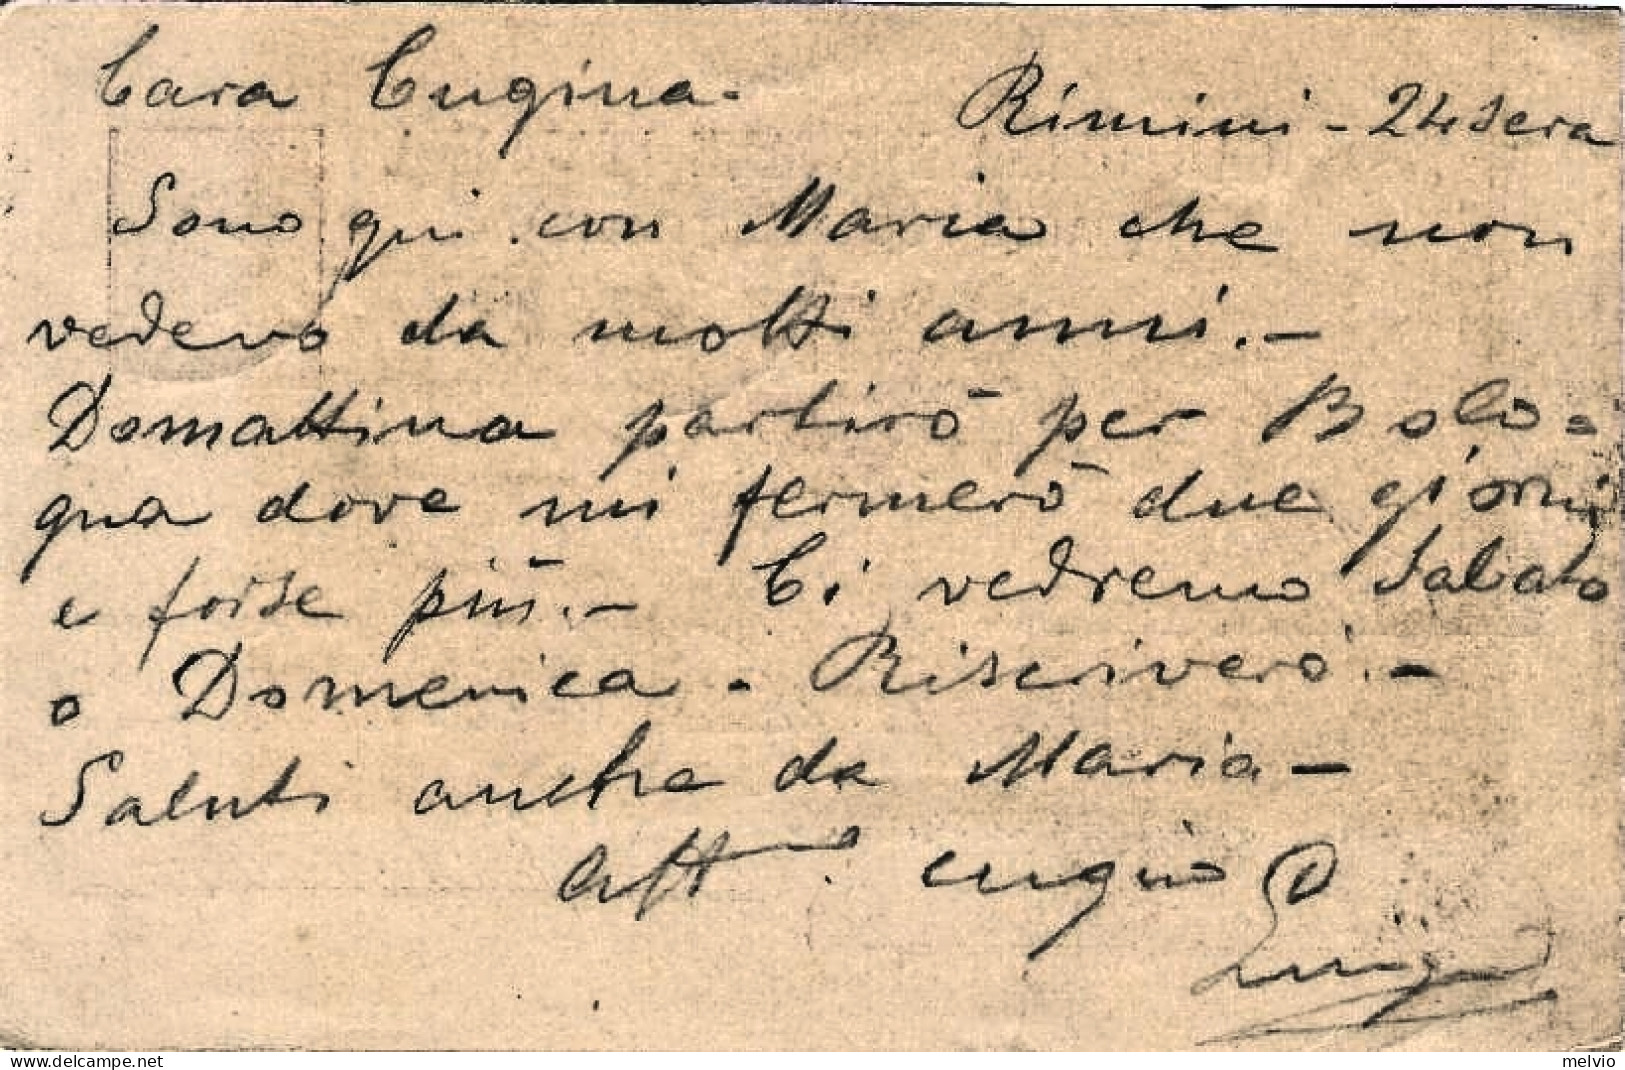 Cara Cugina.
Rimini - 24 sera
Sono qui con Maria che non
vedevo da molti anni. -
Domattina partirò per Bolo=
gna dove mi fermerò due giorni
e forse più. - Ci vedremo Sabato
o Domenica - Riscriverò. -
Saluti anche da Maria -
Aff.mo cugino
Luigi
delcampe.net
melvio